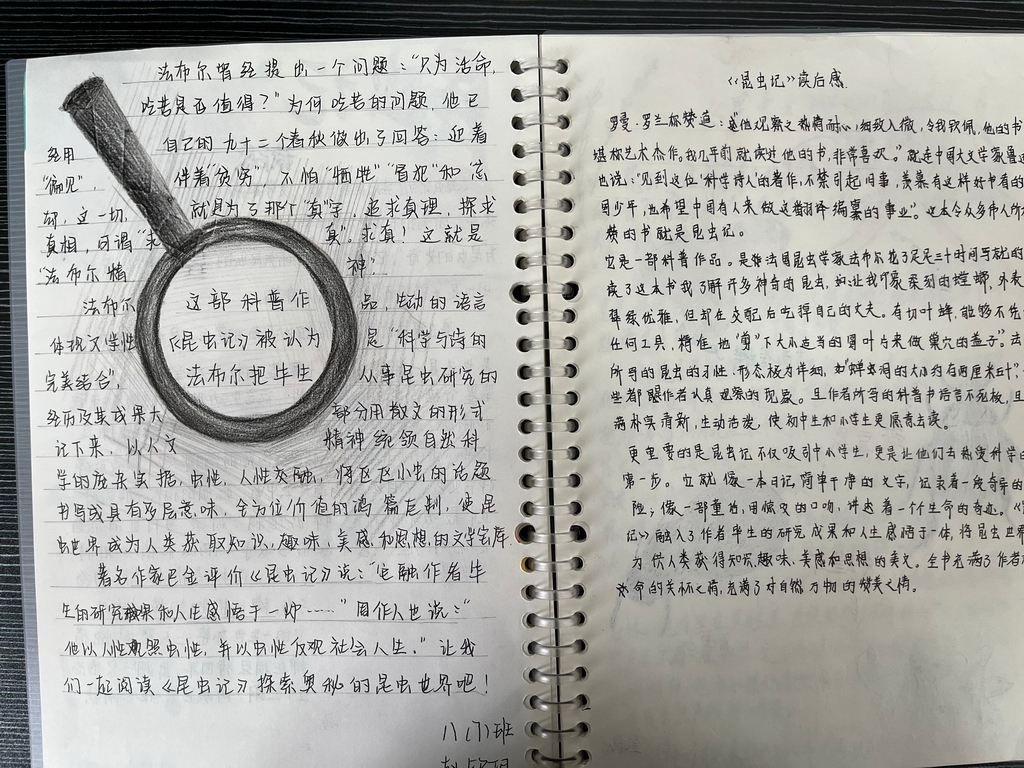 法布尔曾经提出一个问题：“只为活命，
吃苦是否值得？”为何吃苦的问题，他已
经用 自己的九十二个春秋做出了回答：迎着
“偏见”， 伴着“贫穷”，不怕“牺牲”“冒犯”和“忘
却，这一切， 就是为了那个“真”字，追求真理，探求
真相，可谓“求 真”。求真！这就是
“法布尔精 神”
法布尔 这部科普作 品，生动的语言
体现文学性 《昆虫记》被认为 是“科学与诗的
完美结合”， 法布尔把毕生 从事昆虫研究的
经历及其成果大 部分用散文的形式
记下来，以人文 精神统领自然科
学的庞杂实据，虫性，人性交融，将区区小虫的话题
书写成具有多层意味，全方位价值的鸿篇巨制，使昆
虫世界成为人类获取知识，趣味，美感和思想的文学宝库.
著名作家巴金评价《昆虫记》说：“它融作者毕
生的研究成果和人生感悟于一炉……”周作人也说：“
他以人性观照虫性，并以虫性反观社会人生。”让我
们一起阅读《昆虫记》探索奥秘的昆虫世界吧！
八(1)班
《昆虫记》读后感.
罗曼·罗兰称赞道：“他观察之热情耐心，细致入微，令我钦佩，他的书
堪称艺术杰作。我几年前就读过他的书，非常喜欢。”就连中国大文学家鲁迅
也说：“见到这位‘科学诗人’的著作，不禁引起旧事，羡慕有这样好书看的
国少年，也希望中国有人来做这翻译编纂的事业”。这本令众多伟人所
赞的书就是昆虫记。
它是一部科普作品。是法国昆虫学家法布尔花了足足三十时间写就的
读了这本书我了解许多神奇的昆虫，如让我印象深刻的螳螂，外表
优雅，但却在交配后吃掉自己的丈夫。有切叶蜂，能够不凭
任何工具，精准地“剪”下大小适当的圆叶片来做巢穴的盖子。”法
所写的昆虫的习性、形态极为详细，如“蝉的大口约在两厘米五十”
些都跟作者认真观察的现象。且作者所写的科普书语言不死板，且
朴实清新，生动活泼，使初中生和小学生更愿意去读。
更重要的是昆虫记不仅吸引中小学生，更是让他们去热爱科学的
第一步。它就像一本日记，简单干净的文字，记录着一段奇异的
险；像一部童话，用的口吻，讲述着一个个生命的奇迹。《
记》融入了作者毕生的研究成果和人生感悟于一体，将昆虫世界
为供人类获得知识、趣味、美感和思想的美文。全书充满了作者对
命的关怀之情，充满了对自然万物的赞美之情。